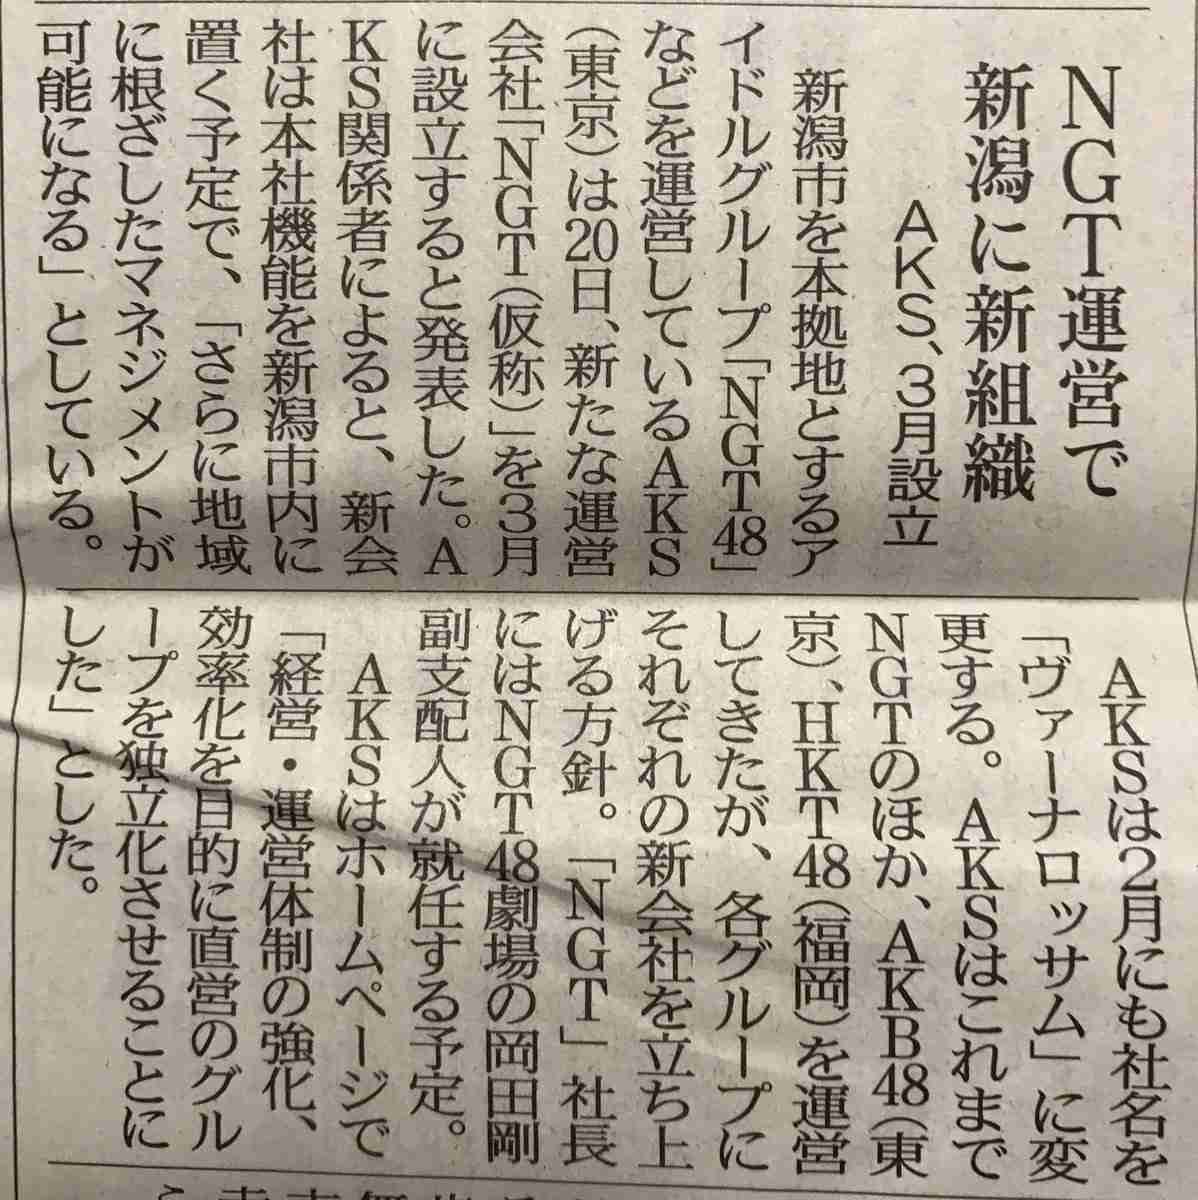 NGT運営で
新潟に新組織
AKS、3月設立
新潟市を本拠地とするア
イドルグループ「NGT48」
などを運営しているAKS
(東京)は20日、新たな運営
会社「NGT(仮称)」を3月
に設立すると発表した。A
KS関係者によると、新会
社は本社機能を新潟市内に
置く予定で、「さらに地域
に根ざしたマネジメントが
可能になる」としている。
AKSは2月にも社名を
「ヴァーナロッサム」に変
更する。AKSはこれまで
NGTのほか、AKB48(東
京)、HKT48(福岡)を運営
してきたが、各グループに
それぞれの新会社を立ち上
げる方針。「NGT」社長
にはNGT48劇場の岡田剛
副支配人が就任する予定。
AKSはホームページで
「経営・運営体制の強化、
効率化を目的に直営のグル
ープを独立化させることに
した」とした。